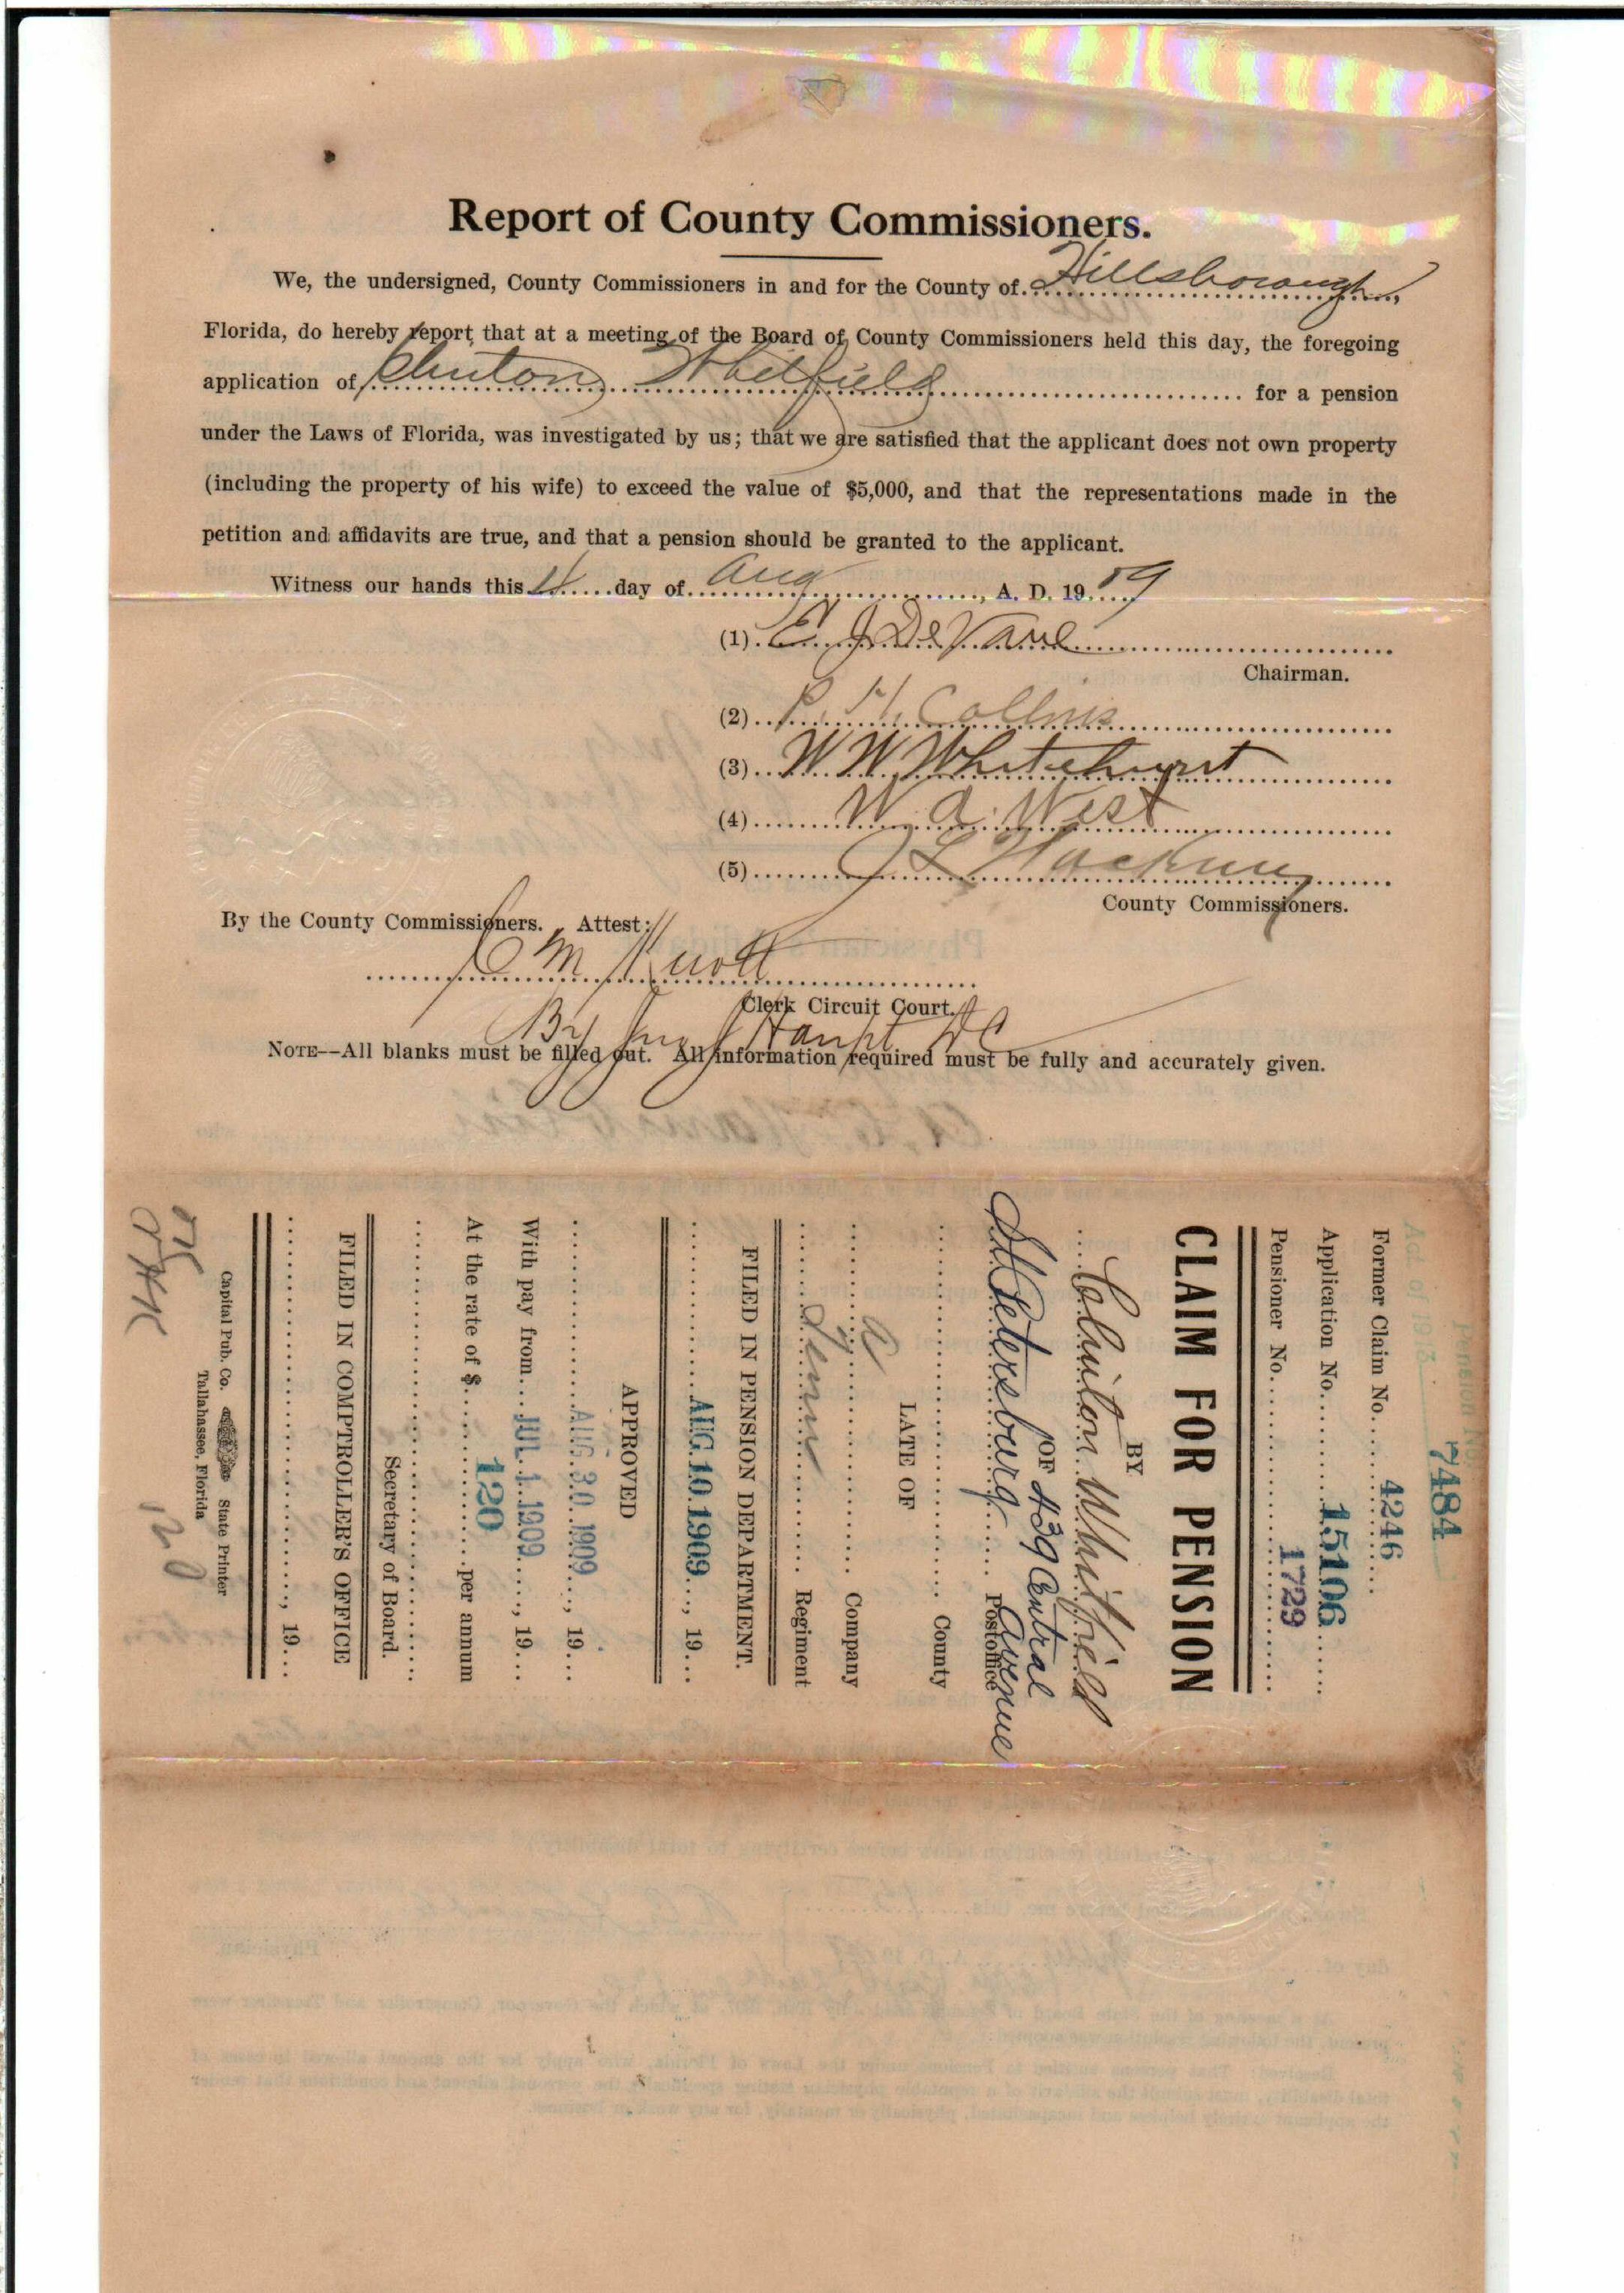 Report of County Commissioners.
We, the undersigned, County Commissioners in and for the County of Hillsborough,
Florida, do hereby report that at a meeting of the Board of County Commissioners held this day, the foregoing
application of Clinton Whitfield for a pension
under the Laws of Florida, was investigated by us; that we are satisfied that the applicant does not own property
(including the property of his wife) to exceed the value of $5,000, and that the representations made in the
petition and affidavits are true, and that a pension should be granted to the applicant.
Witness our hands this 4 day of Aug, A. D. 1909
(1) E. J. DeVane
Chairman.
(2) P. H. Collins
(3) W W Whitehurst
(4) W. A. West
(5) J L Hackney
County Commissioners.
By the County Commissioners. Attest:
M Knott
Clerk Circuit Court.
By Haupt DC
NOTE--All blanks must be filled out. All information required must be fully and accurately given.
Act of 1913
Pension No. 7484
Former Claim No. 4246
Application No. 15106
Pensioner No. 1729
CLAIM FOR PENSION
BY
Clinton Whitfield
OF 439 Central Avenue
St Petersburg Postoffice
County
LATE OF
A Company
Tenn Regiment
FILED IN PENSION DEPARTMENT.
AUG 10 1909, 19
APPROVED
AUG 30 1909, 19
With pay from JUL 1 1909, 19
At the rate of $ 120 per annum
Secretary of Board.
FILED IN COMPTROLLER'S OFFICE
, 19
Capital Pub. Co. State Printer
Tallahassee, Florida
120